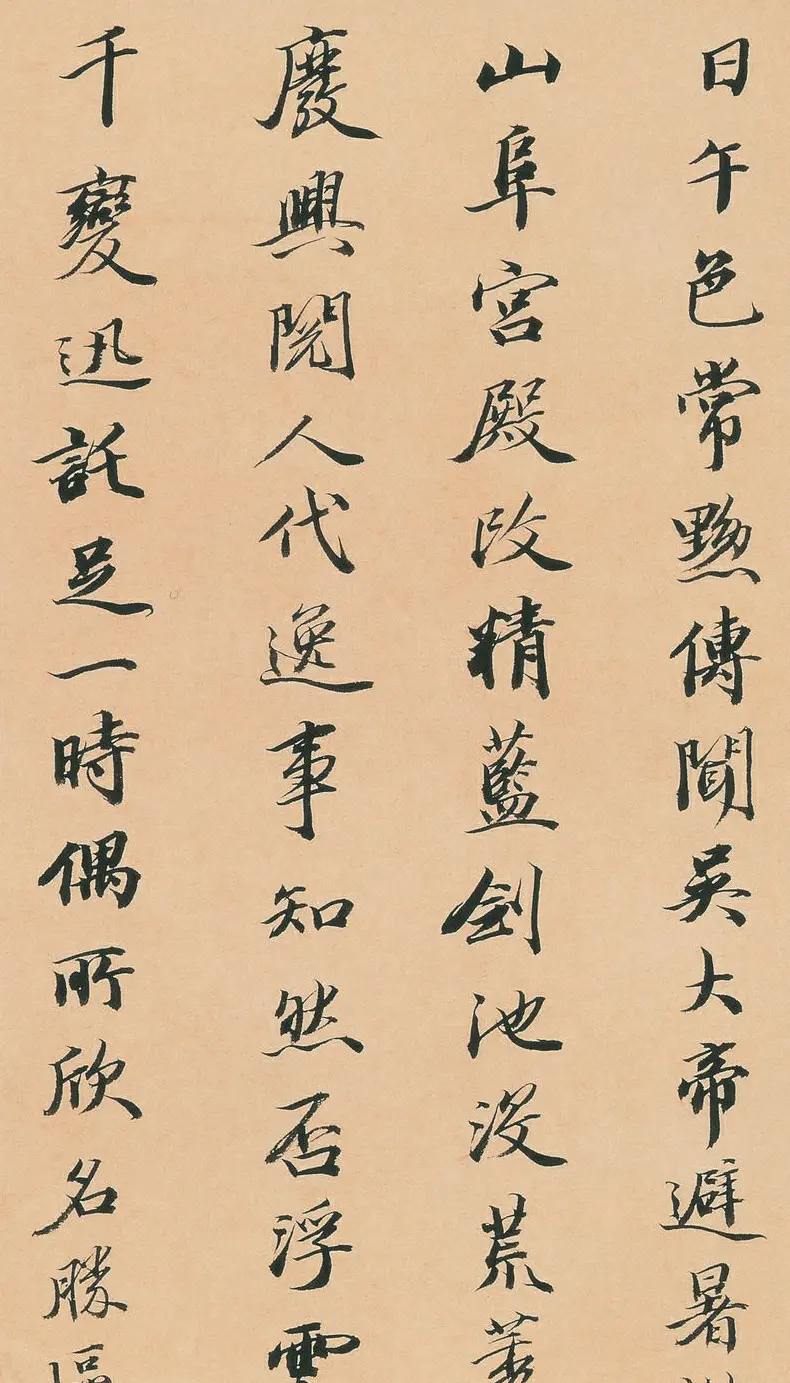 日午色常黝傳聞吳大帝避暑
山阜宮殿改精藍劍池沒荒
廢興閱人代逸事知然否浮雲
千變迅託足一時偶所欣名勝區